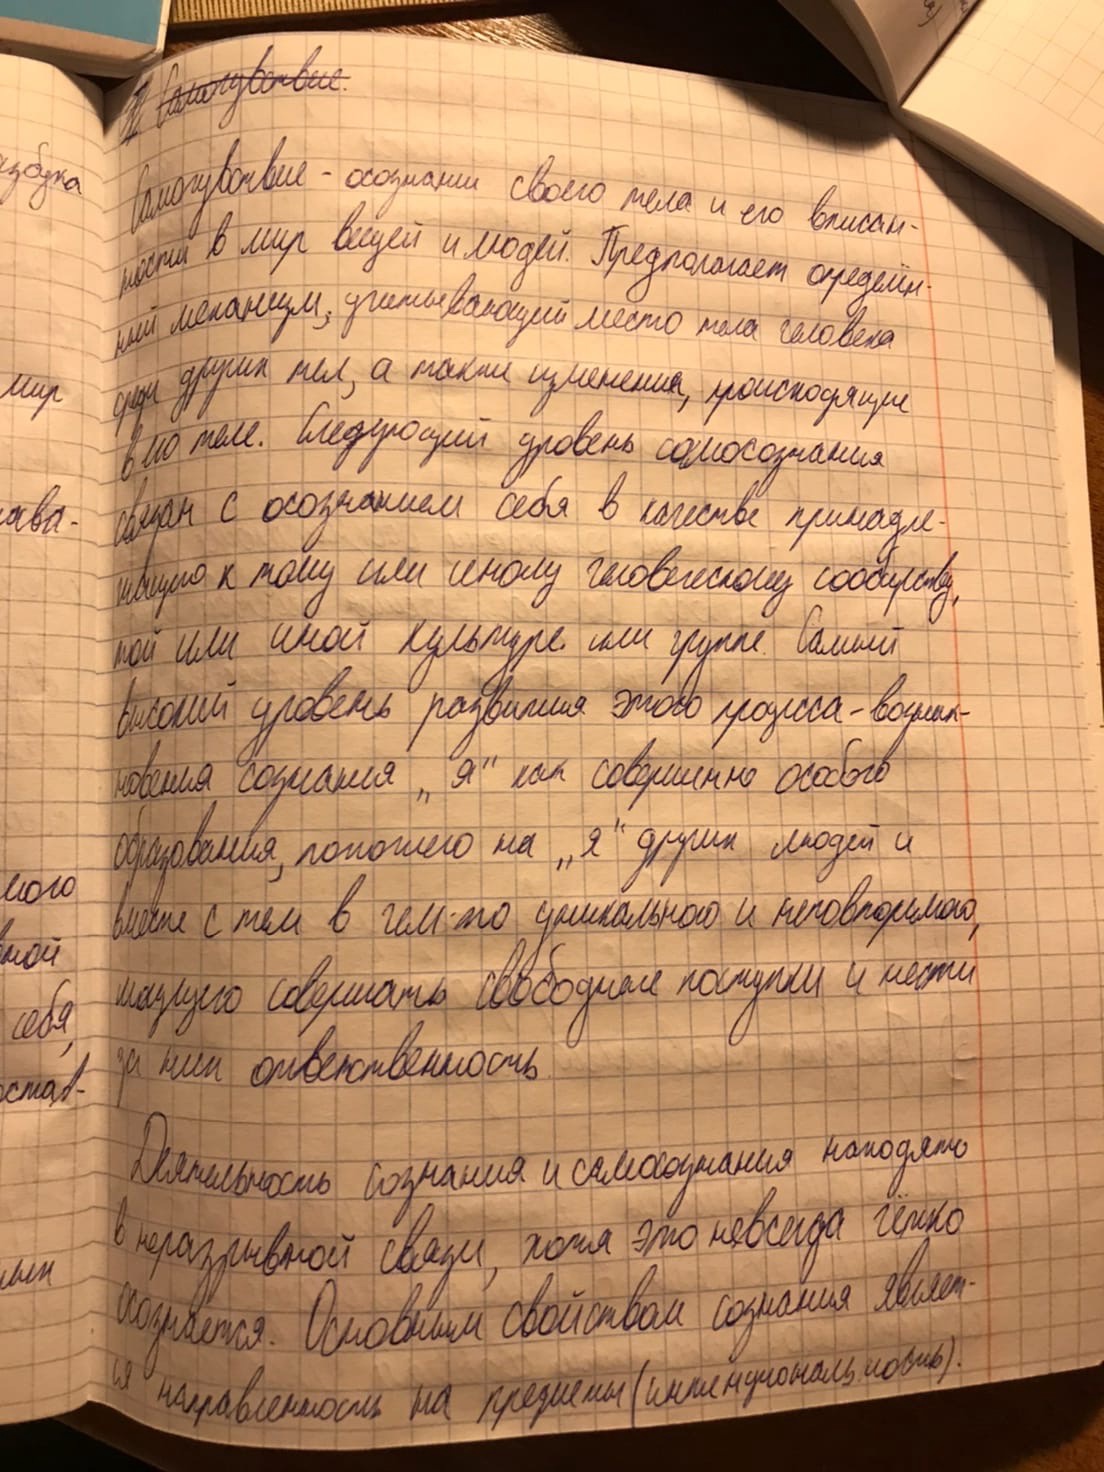 Самочувствие.
Самочувствие - осознании своего тела и его вписан-
ности в мир вещей и людей. Предполагает определён-
ный механизм, учитывающий место тела человека
среди других тел, а также изменения, происходящие
в его теле. Следующий уровень самосознания
связан с осознанием себя в качестве принадле-
жащего к тому или иному человеческому сообществу,
той или иной культуре или группе. Самый
высокий уровень развития этого процесса - возник-
новения сознания „я" как совершенно особого
образования, похожего на „я" других людей и
вместе с тем в чем-то уникального и неповторимого,
могущего совершать свободные поступки и нести
за них ответственность.
Деятельность сознания и самосознания находятся
в неразрывной связи, хотя это невсегда чётко
осознается. Основным свойством сознания являет-
ся направленность на предметы (интенциональность).
азбука
мир
ава-
мого
вной
себя,
остав-
ных